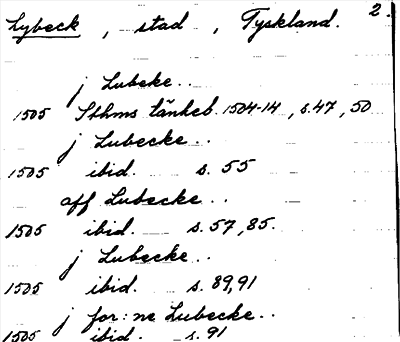 Lybeck, stad, Tyskland. 2.
j Lubeke..
1505 Sthms tänkeb. 1504-14, s. 47, 50
j Lubecke..
1505 ibid. s. 55
aff Lubecke..
1505 ibid. s. 57, 85.
j Lubecke..
1505 ibid. s. 89, 91
j for:ne Lubecke..
1505 ibid. s. 91